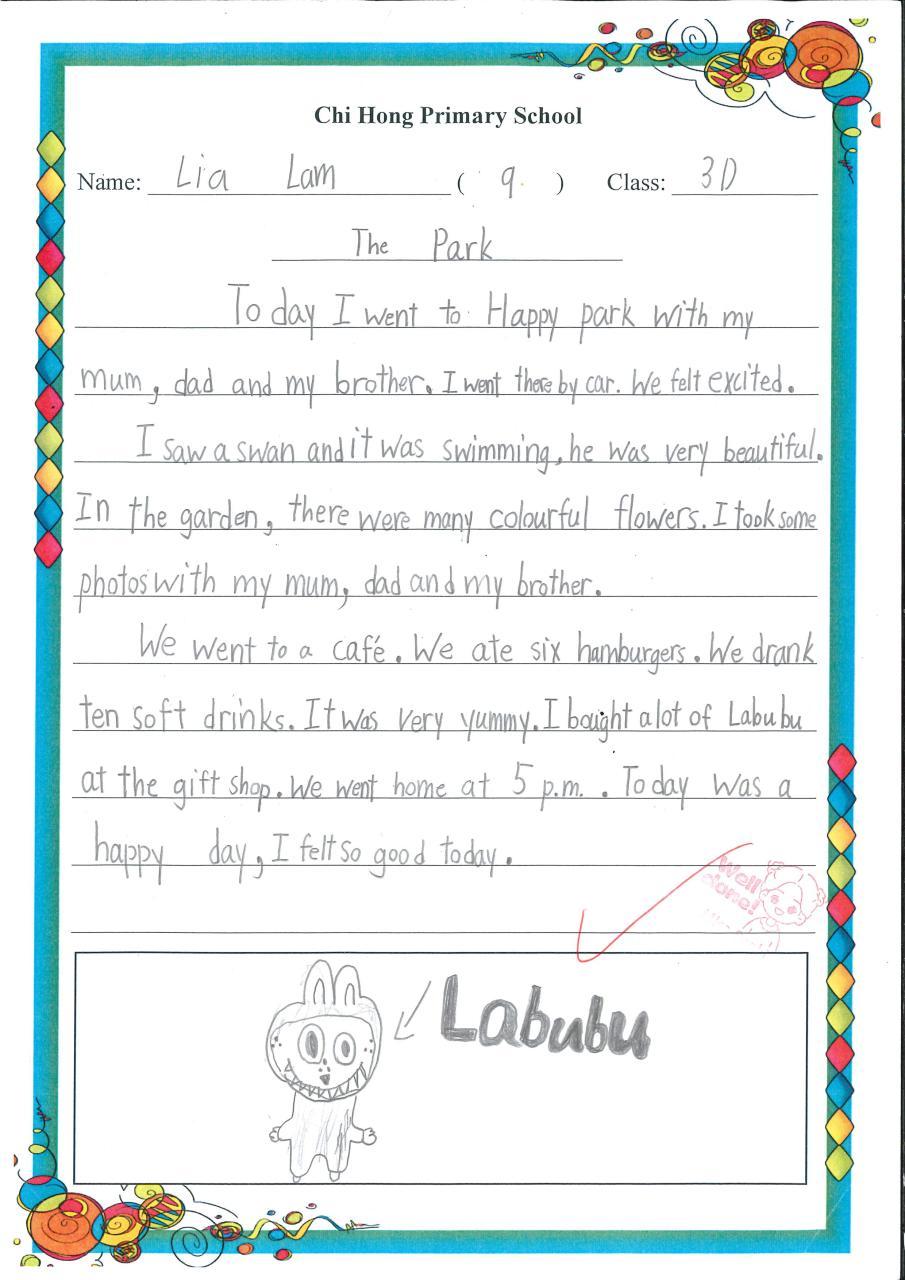 Chi Hong Primary School
Name: Lia Lam ( 9 ) Class: 3D
The Park
Today I went to Happy park with my
mum, dad and my brother. I went there by car. We felt excited.
I saw a swan and it was swimming, he was very beautiful.
In the garden, there were many colourful flowers. I took some
photos with my mum, dad and my brother.
We went to a café. We ate six hamburgers. We drank
ten soft drinks. It was very yummy. I bought a lot of Labubu
at the gift shop. We went home at 5 p.m. . Today was a
happy day, I felt so good today.
Well
done!
Labubu